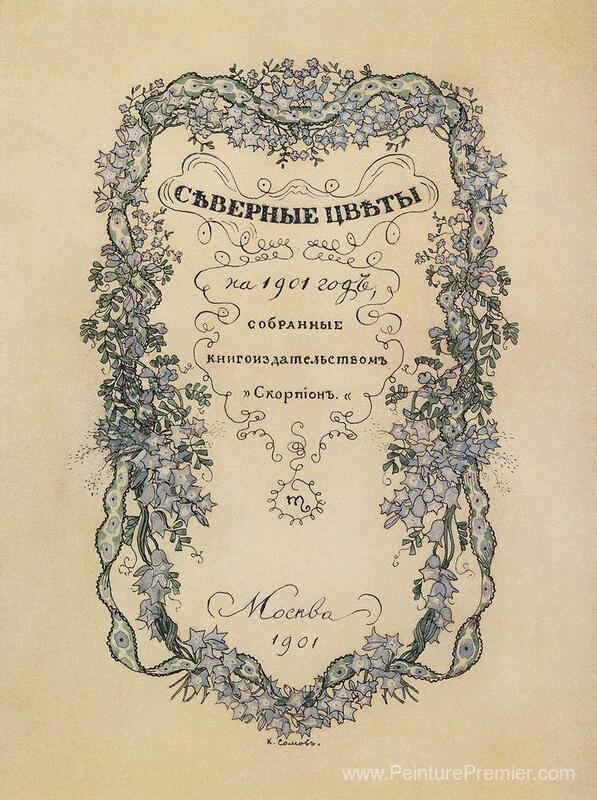 СѢВЕРНЫЕ ЦВѢТЫ
на 1901 годъ,
СОБРАННЫЕ
книгоиздательствомъ
»Скорпіонъ.«
m
Москва
1901
К. Сомовъ.
www.PeinturePremier.com